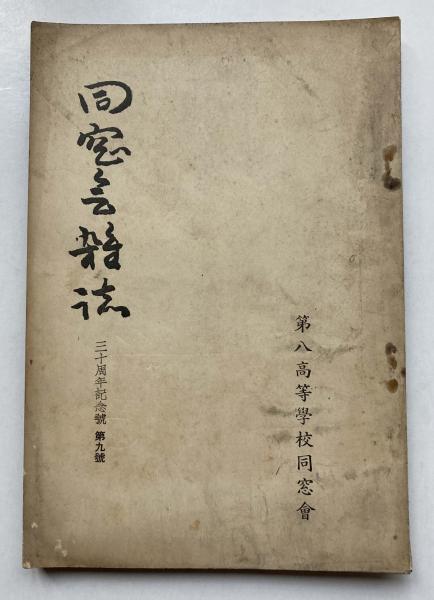 同窓会雑誌
三十周年記念號 第九號
第八高等學校同窓會